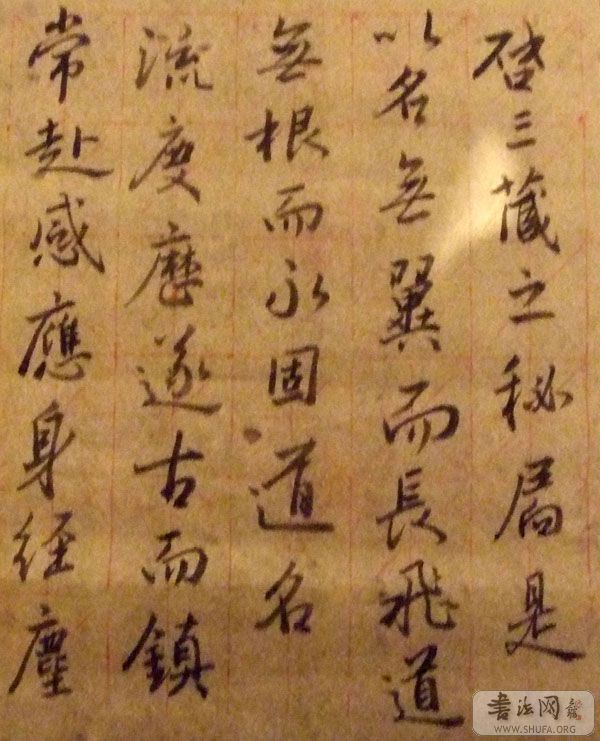 啓三藏之秘扃是
以名無翼而長飛道
無根而永固道名
流度歷遂古而鎮
常赴感應身經塵
書法网
WWW.SHUFA.ORG